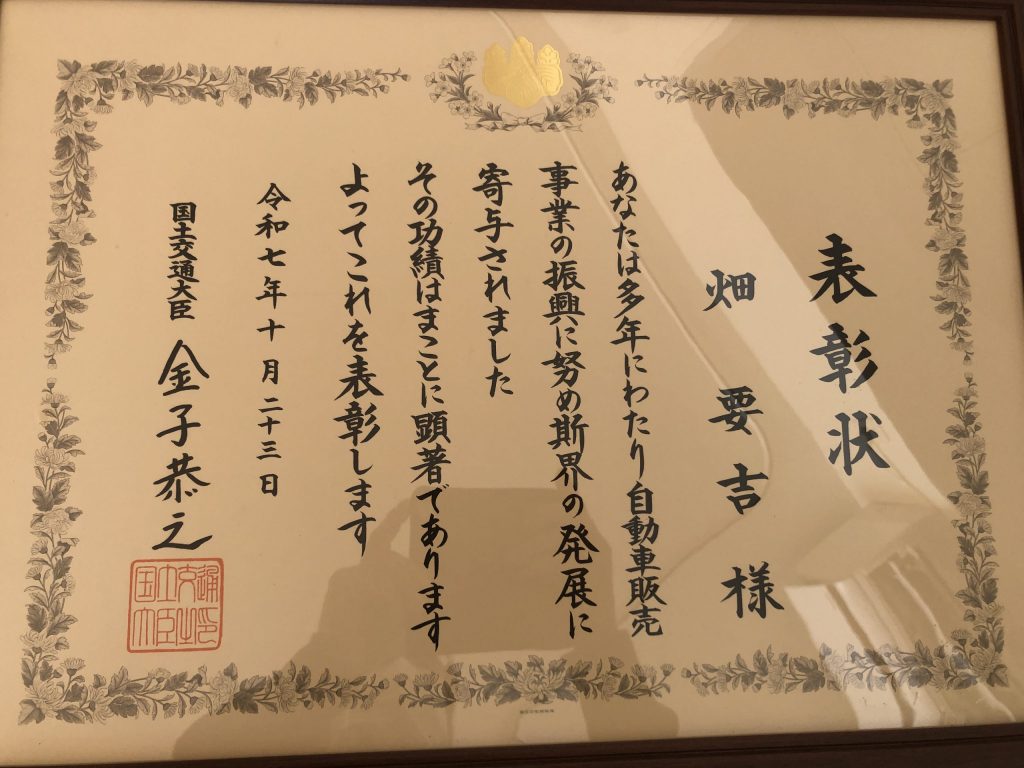 表彰状
畑要吉様
あなたは多年にわたり自動車販売
事業の振興に努め斯界の発展に
寄与されました
その功績はまことに顕著であります
よってこれを表彰します
令和七年十月二十三日
国土交通大臣 金子恭之